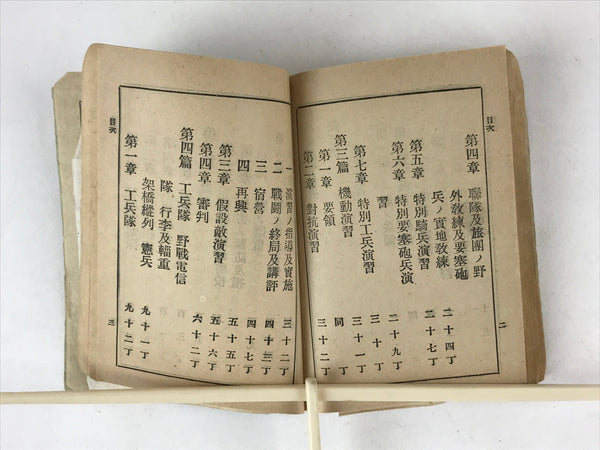 目次
第四章 聯隊及旅團ノ野
外敎練及要塞砲
兵ノ實地敎練 二十七丁
第五章 特別騎兵演習
第六章 特別要塞兵演
習 二十九丁
第七章 特別工兵演習 三十丁
第三篇 機動演習 三十一丁
第一章 要領 同 丁
第二章 對抗演習 三十二丁
二
一 演習ノ指導及實施 三十二丁
二 戰鬪ノ終局及講評 四十三丁
三 宿營 四十七丁
四 再興 五十五丁
第三章 假設敵演習 五十六丁
第四章 審判 六十二丁
第四篇 工兵隊 野戰電信
隊 行李及輜重
架橋縱列 憲兵 九十一丁
第一章 工兵隊 九十二丁
目次
三